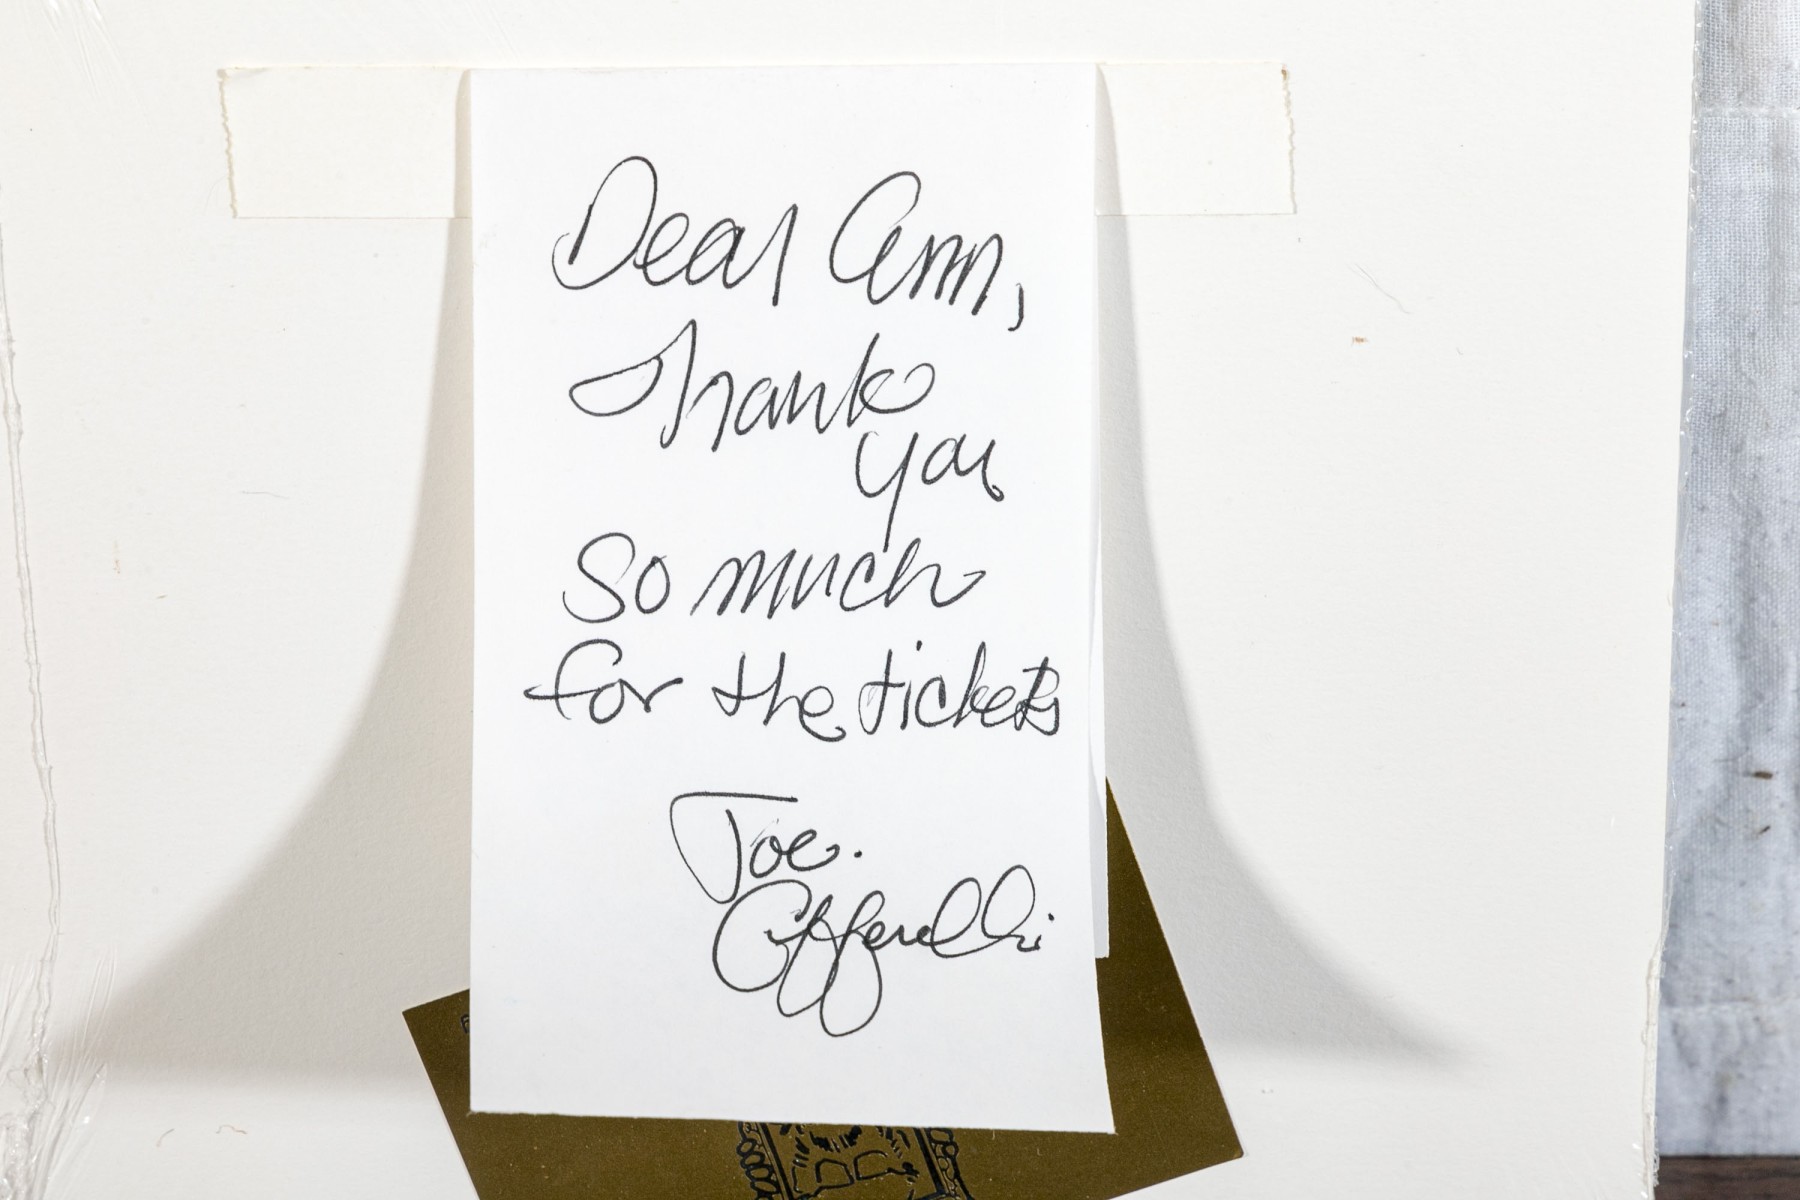 Dear Ann,
Thank
you
So much
for the tickets
Joe.